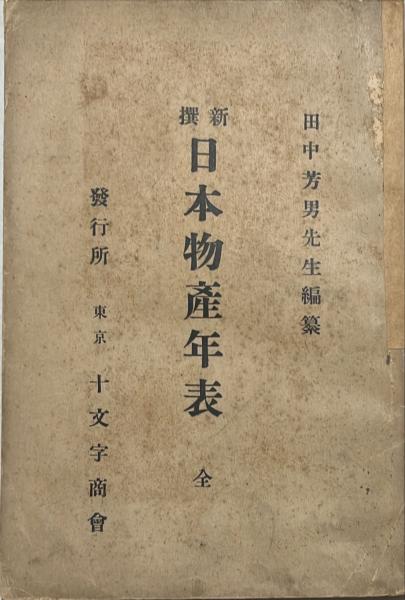 田中芳男先生編纂
新撰
日本物產年表 全
發行所 東京 十文字商會